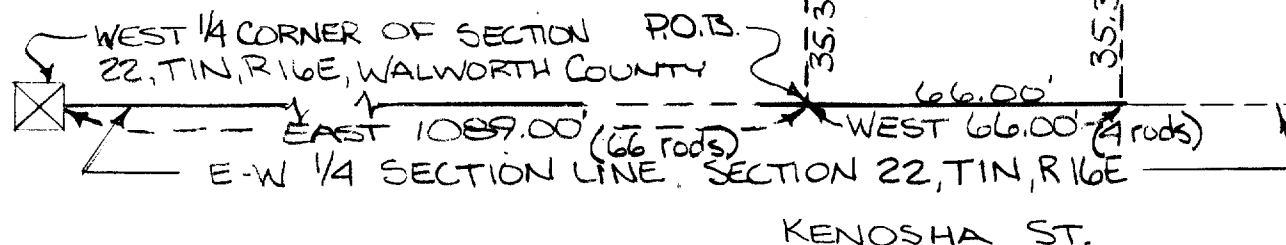 WEST 1/4 CORNER OF SECTION
22, T1N, R16E, WALWORTH COUNTY
P.O.B.
35.3
35.3
66.00'
EAST 1089.00' (66 rods)
WEST 66.00' (4 rods)
E-W 1/4 SECTION LINE, SECTION 22, T1N, R16E
KENOSHA ST.